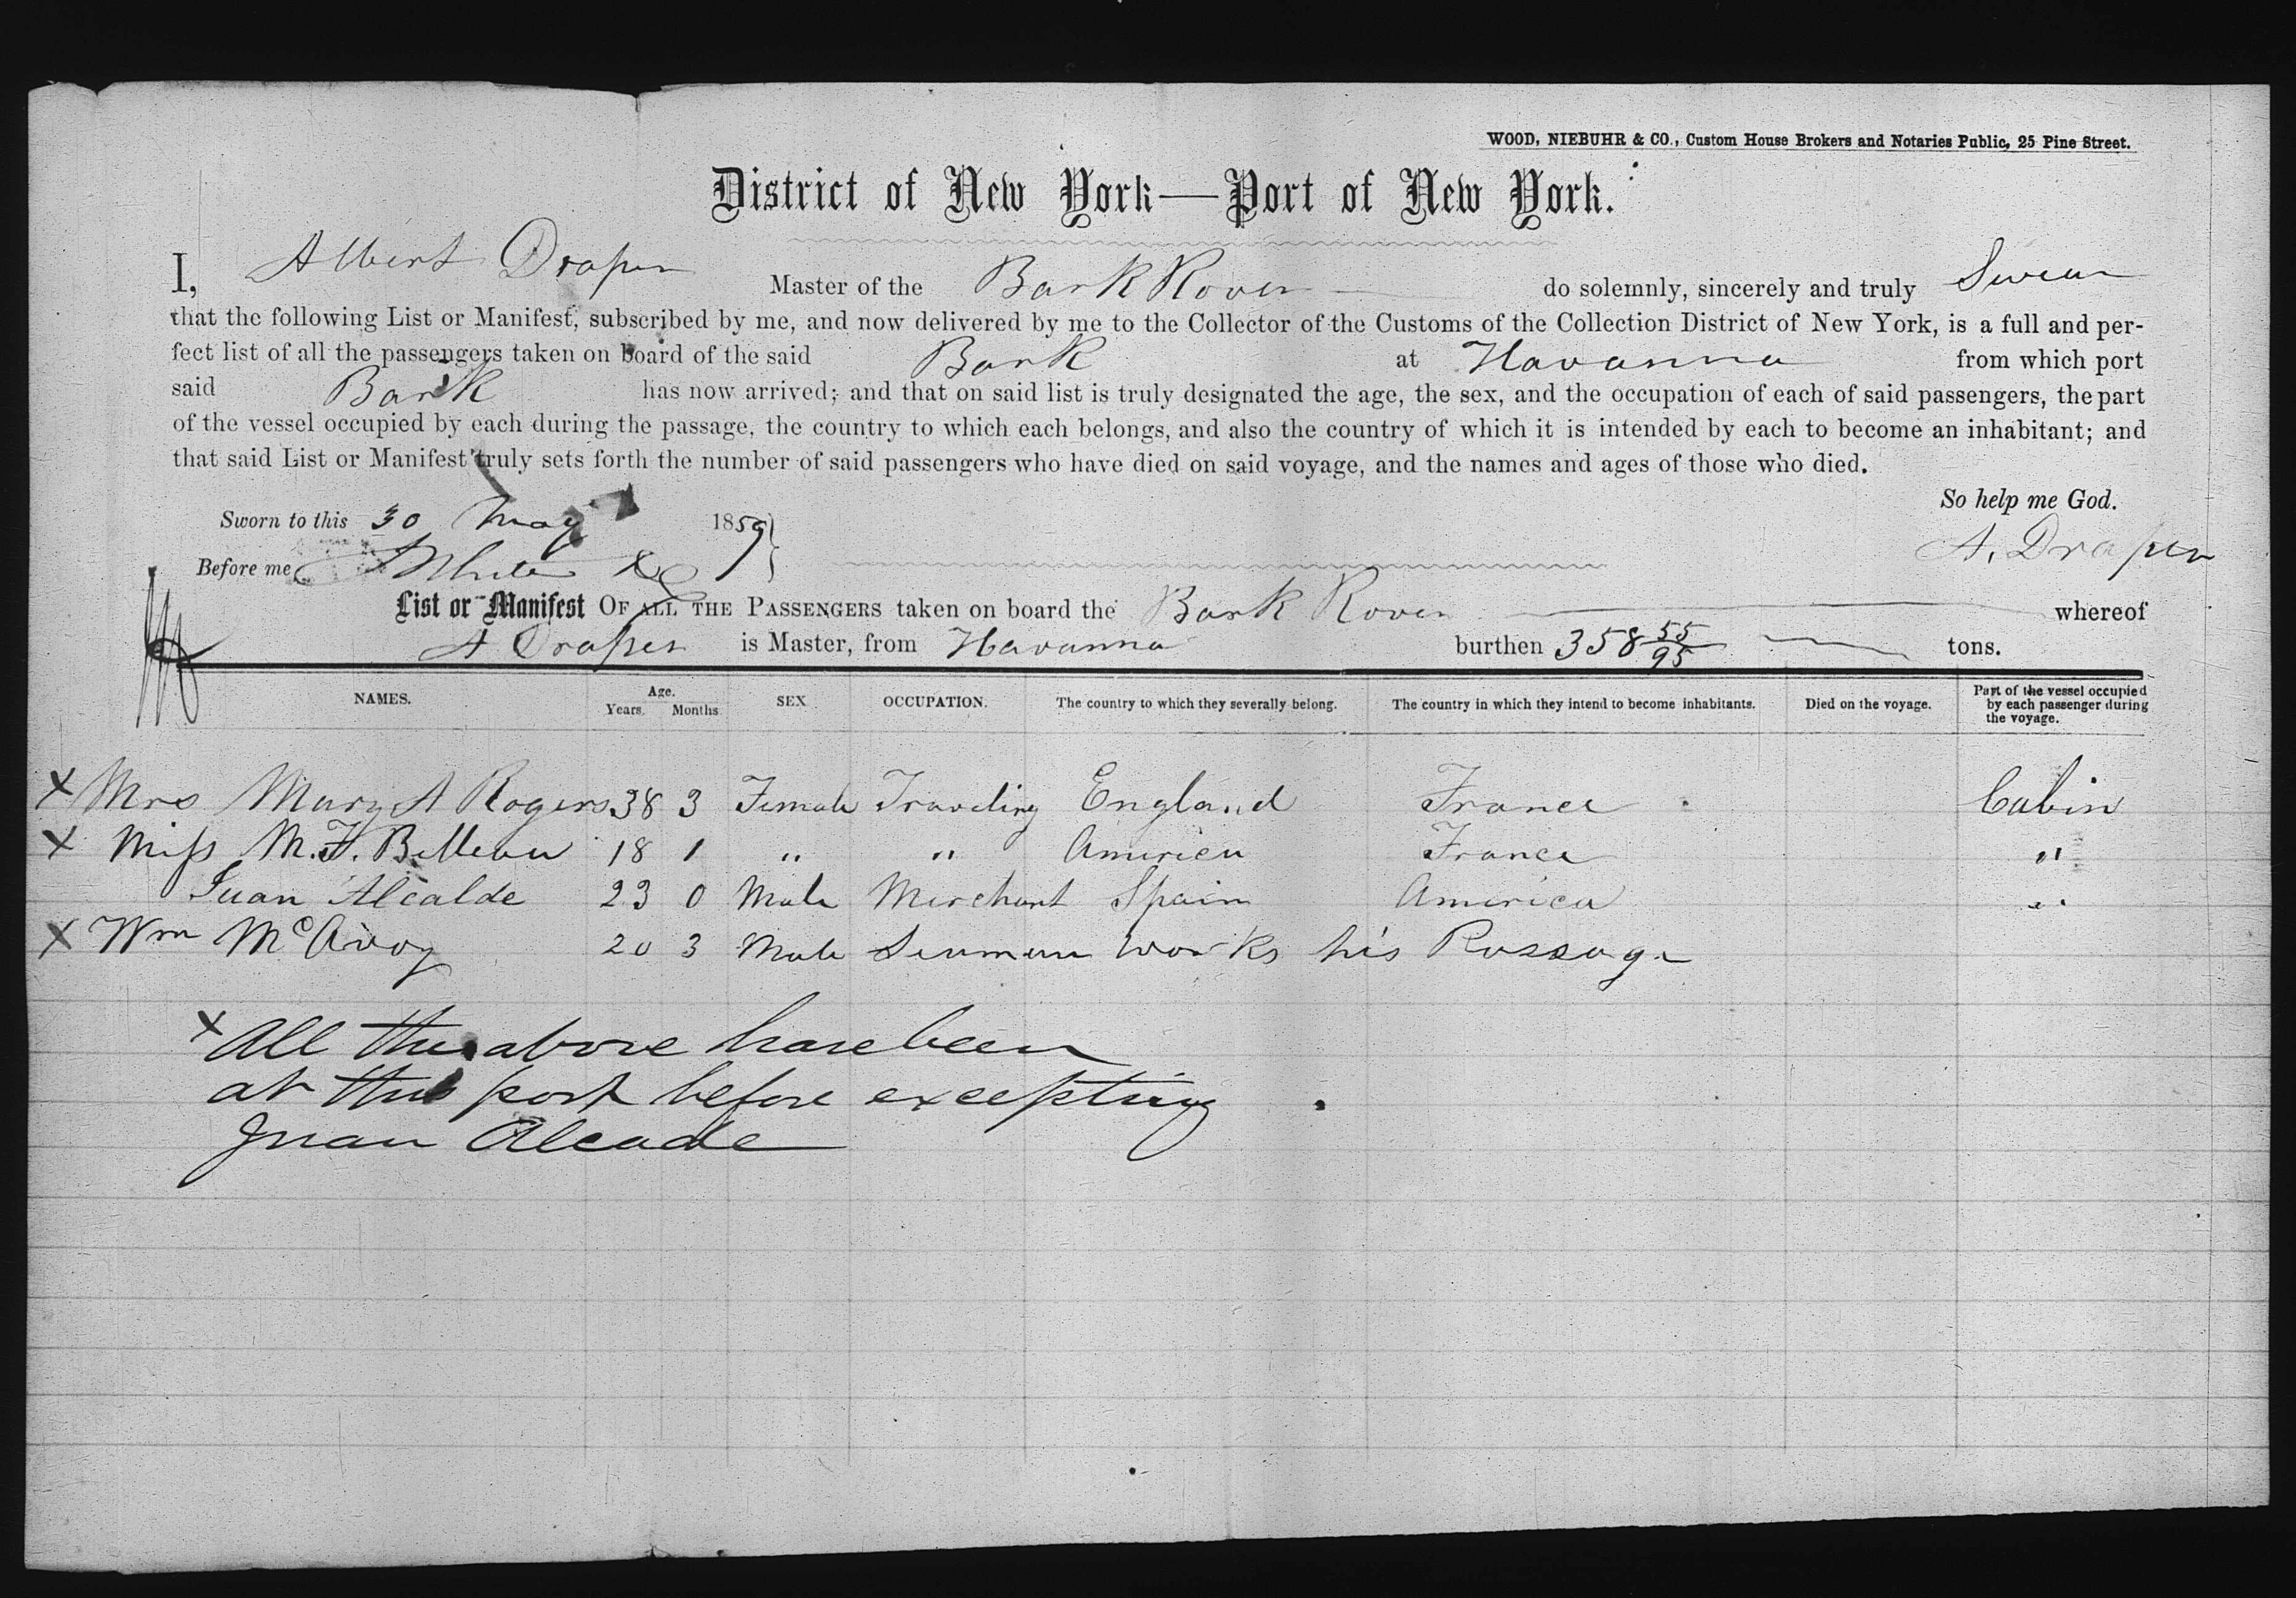 WOOD, NIEBUHR & CO., Custom House Brokers and Notaries Public, 25 Pine Street.
District of New York—Port of New York.
I, Albert Draper Master of the Bark Rover do solemnly, sincerely and truly Swear
that the following List or Manifest, subscribed by me, and now delivered by me to the Collector of the Customs of the Collection District of New York, is a full and per-
fect list of all the passengers taken on board of the said Bark at Havanna from which port
said Bark has now arrived; and that on said list is truly designated the age, the sex, and the occupation of each of said passengers, the part
of the vessel occupied by each during the passage, the country to which each belongs, and also the country of which it is intended by each to become an inhabitant; and
that said List or Manifest truly sets forth the number of said passengers who have died on said voyage, and the names and ages of those who died.
So help me God.
Sworn to this 30 May 1859
A. Draper
Before me
List or Manifest OF ALL THE PASSENGERS taken on board the Bark Rover whereof
A Draper is Master, from Havanna burthen 358 55/95 tons.
NAMES. Age. Years. Months. SEX OCCUPATION. The country to which they severally belong. The country in which they intend to become inhabitants. Died on the voyage. Part of the vessel occupied by each passenger during the voyage.
X Mrs Mary A Rogers 38 3 Female Traveling England France Cabin
X Miss M. F. 18 1 " " America France "
Juan Alcalde 23 0 Male Merchant Spain America "
X Wm McAvoy 20 3 Male Seaman works his Passage
X All the above have been
at this port before excepting
Juan Alcade